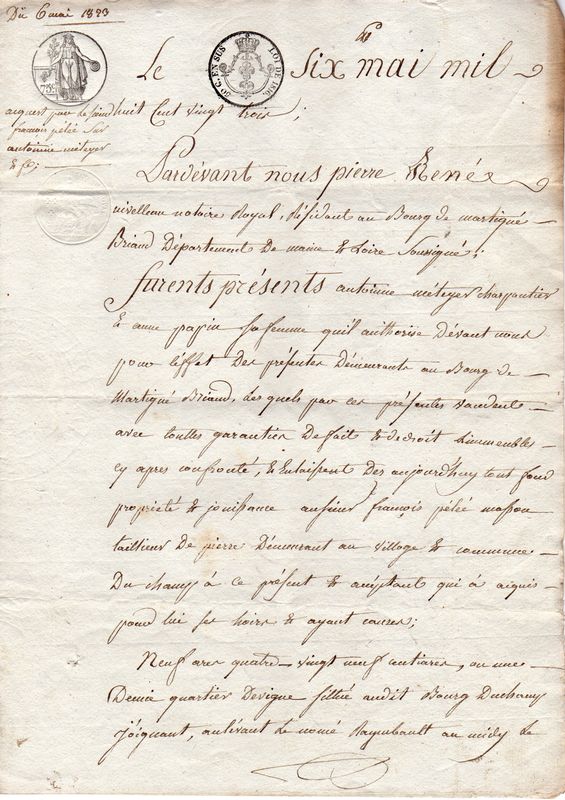 Du 6 mai 1823
30 C. EN SUS
LOI DE 1816
75c
Le Six mai mil
huit Cent vingt trois ;
acquest par
françois pélée sur
antoinne métayer
& fe ;
Pardevant nous pierre Renée
nivelleau notaire Royal, Résidant au Bourg de martigné
Briand Département De maine & Loire Soussigné ;
furents présents antoinne métayer charpentier
& anne papin sa femme qu'il authorise Devant nous
pour l'effet Des présentes Demeurants au Bourg de
Martigné Briand, Les quels par ces présentes vandent
avec touttes garanties De fait & de droit Limmeubles
cy apres confronté, & Delaissent Des aujourdhuy tout fond
propriété & jouissance au sieur françois pélée masson
taillieur De pierre Demeurant au village & commune
Du champ à ce présent & aceptant qui à aquis
pour lui ses hoirs & ayant causes ;
Neuf ares quatre-vingt neuf centiares, ou une
Demie quartier De vigne sittué audit Bourg Duchamp
Joignant, au levant le nomé Raimbault au midy le